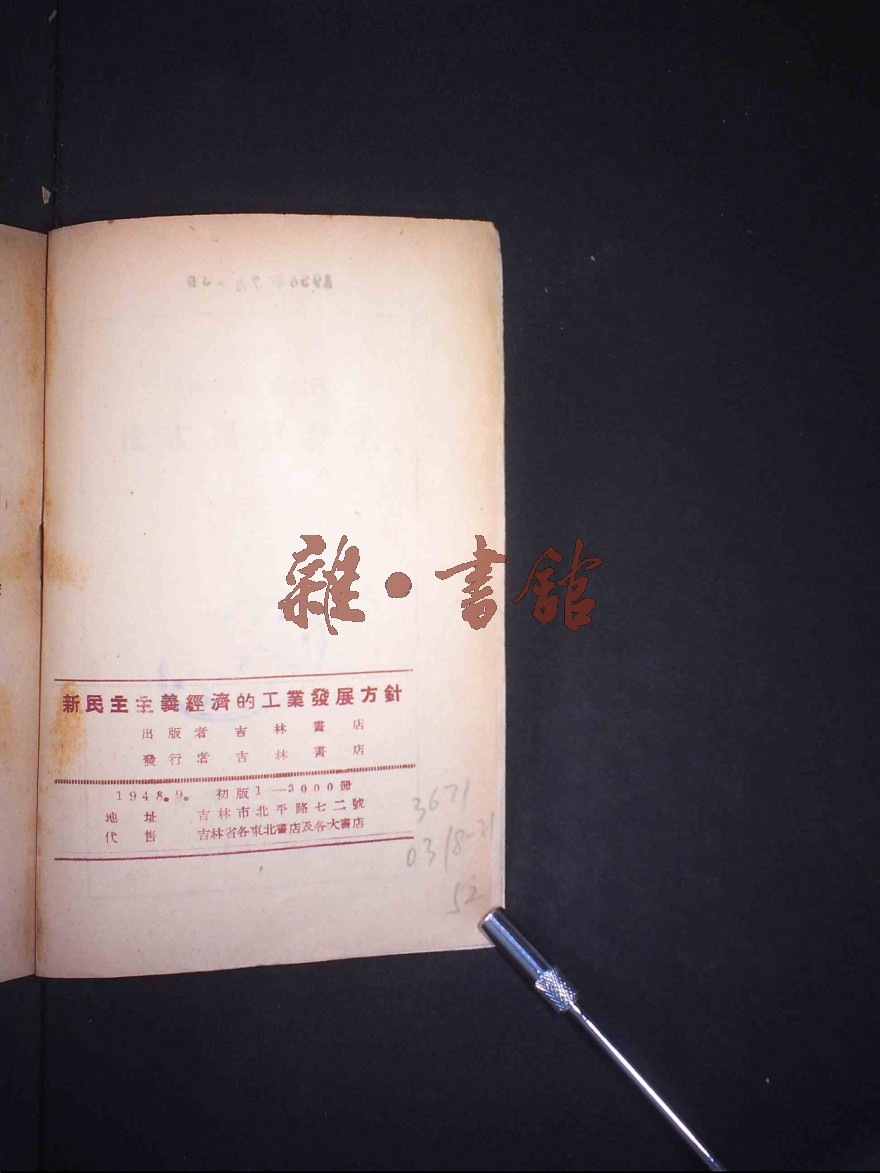 雜·書館
新民主主義經濟的工業發展方針
出版者 吉林書店
發行者 吉林書店
1948.9. 初版1—3000冊
地址 吉林市北平路七二號
代售 吉林省各東北書店及各大書店
3671
0318-21
52